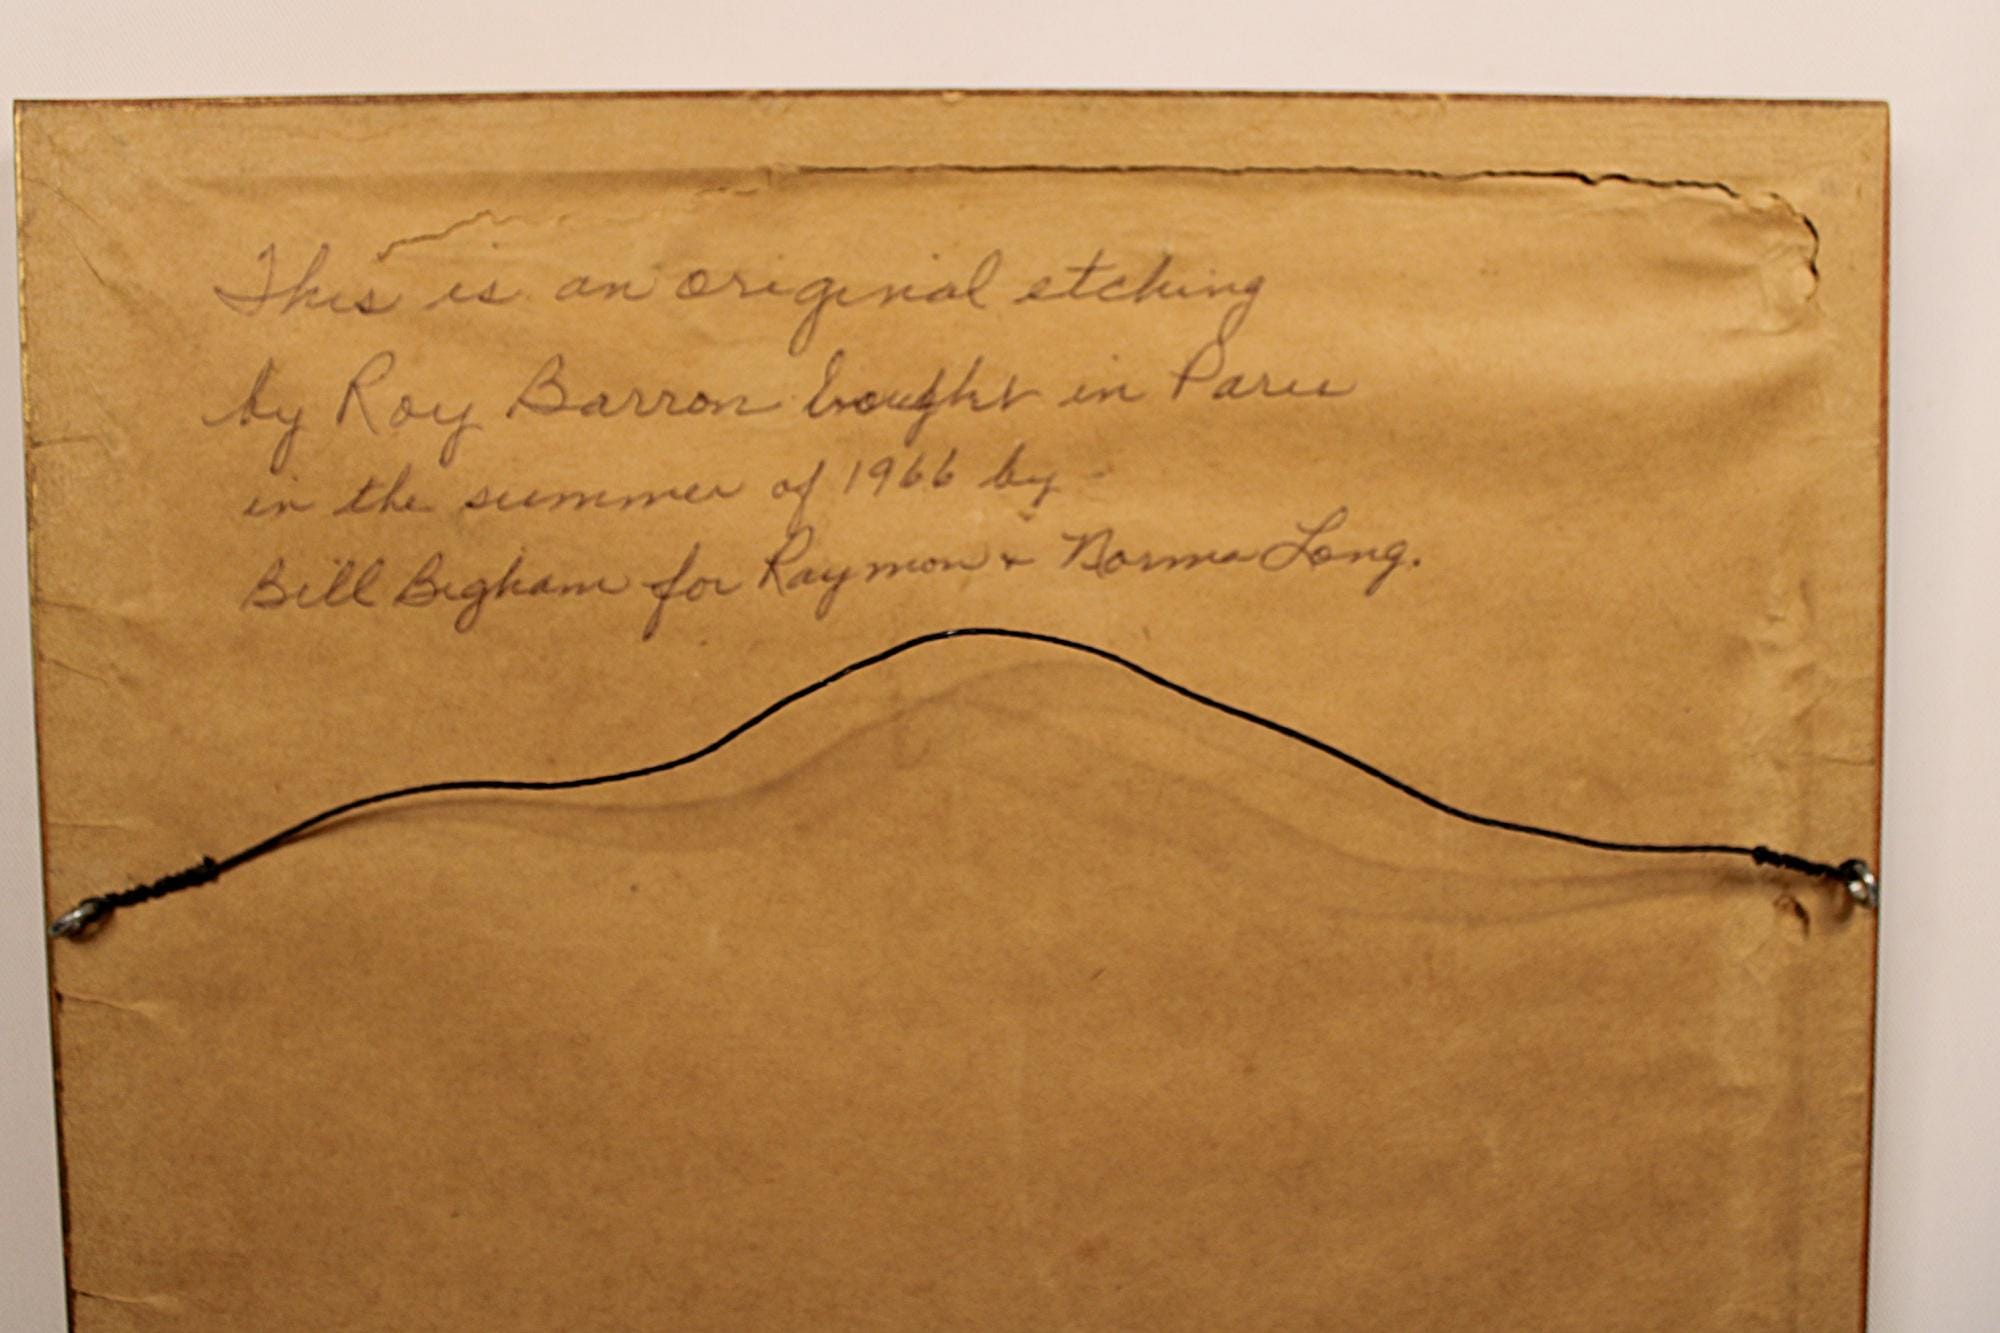 This is an original etching
by Roy Barron bought in Paris
in the summer of 1966 by -
Bill Bigham for Raymon & Norma Long.